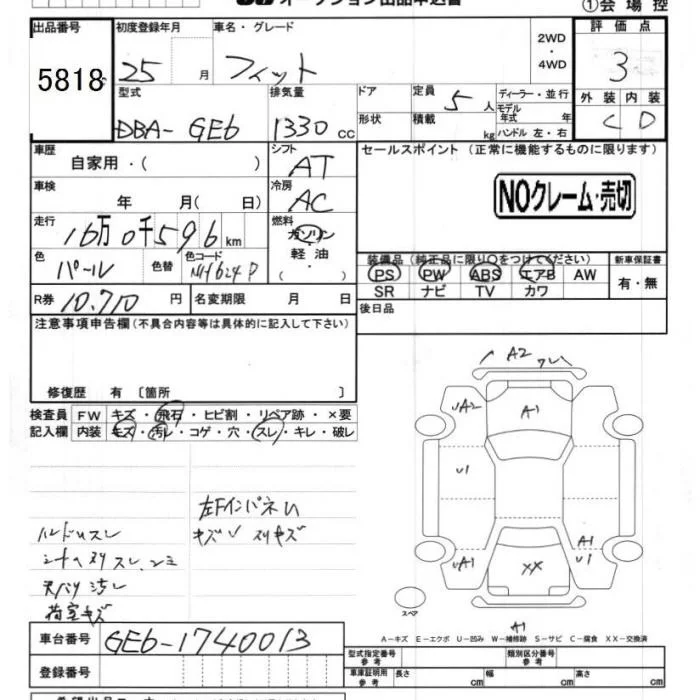 ①会場控
出品番号 初度登録年月 車名・グレード 2WD・4WD 評価点
5818 25 月 フィット 3
型式 排気量 ドア 定員 5 人 ディーラー・並行 外装 内装
DBA- GE6 1330 cc 形状 積載 kg モデル年式 年 C D
ハンドル 左・右
車歴 自家用・( ) シフト AT セールスポイント (正常に機能するものに限ります)
車検 年 月( 日) 冷房 AC NOクレーム・売切
走行 16万0千596km 燃料 ガソリン・軽油・( )
色 パール 色替 色コード NH624P
装備品 (純正品に限り○をつけてください) 新車保証書
PS PW ABS エアB AW 有・無
SR ナビ TV カワ
R券 10,710 円 名変期限 月 日 後日品
注意事項申告欄(不具合内容等は具体的に記入して下さい)
修復歴 有 〔箇所 〕
検査員 FW キズ・飛石・ヒビ割・リペア跡・×要
記入欄 内装 キズ・汚レ・コゲ・穴・スレ・キレ・破レ
A2 ワレ
UA2 A1
U1
UA1 XX A1 U1
左FインパネU
キズU スリキズ
ハンドルスレ
シートヘタリスレ、シミ
天バリ汚レ
荷室キズ
スペア
A1
A-キズ E-エクボ U-凹み W-補修跡 S-サビ C-腐食 XX-交換済
車台番号 GE6-1740013 型式指定番号 参考 類別区分番号 参考
登録番号 車庫証明用 参考 長さ cm 幅 cm 高さ cm